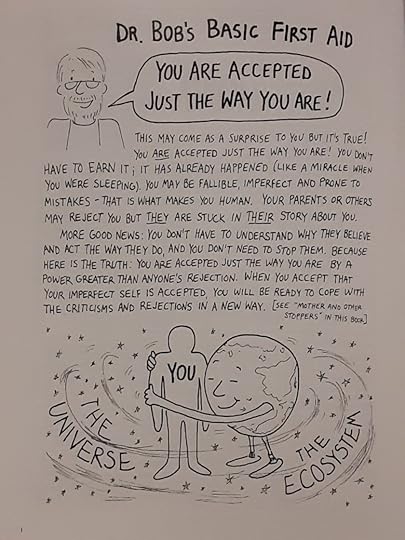 DR. BOB'S BASIC FIRST AID
YOU ARE ACCEPTED
JUST THE WAY YOU ARE!
THIS MAY COME AS A SURPRISE TO YOU BUT IT'S TRUE!
YOU ARE ACCEPTED JUST THE WAY YOU ARE! YOU DON'T
HAVE TO EARN IT; IT HAS ALREADY HAPPENED (LIKE A MIRACLE WHEN
YOU WERE SLEEPING). YOU MAY BE FALLIBLE, IMPERFECT AND PRONE TO
MISTAKES - THAT IS WHAT MAKES YOU HUMAN. YOUR PARENTS OR OTHERS
MAY REJECT YOU BUT THEY ARE STUCK IN THEIR STORY ABOUT YOU.
MORE GOOD NEWS: YOU DON'T HAVE TO UNDERSTAND WHY THEY BELIEVE
AND ACT THE WAY THEY DO, AND YOU DON'T NEED TO STOP THEM. BECAUSE
HERE IS THE TRUTH: YOU ARE ACCEPTED JUST THE WAY YOU ARE BY A
POWER GREATER THAN ANYONE'S REJECTION. WHEN YOU ACCEPT THAT
YOUR IMPERFECT SELF IS ACCEPTED, YOU WILL BE READY TO COPE WITH
THE CRITICISMS AND REJECTIONS IN A NEW WAY. [SEE "MOTHER AND OTHER
STOPPERS" IN THIS BOOK]
YOU
THE UNIVERSE
THE ECOSYSTEM
1